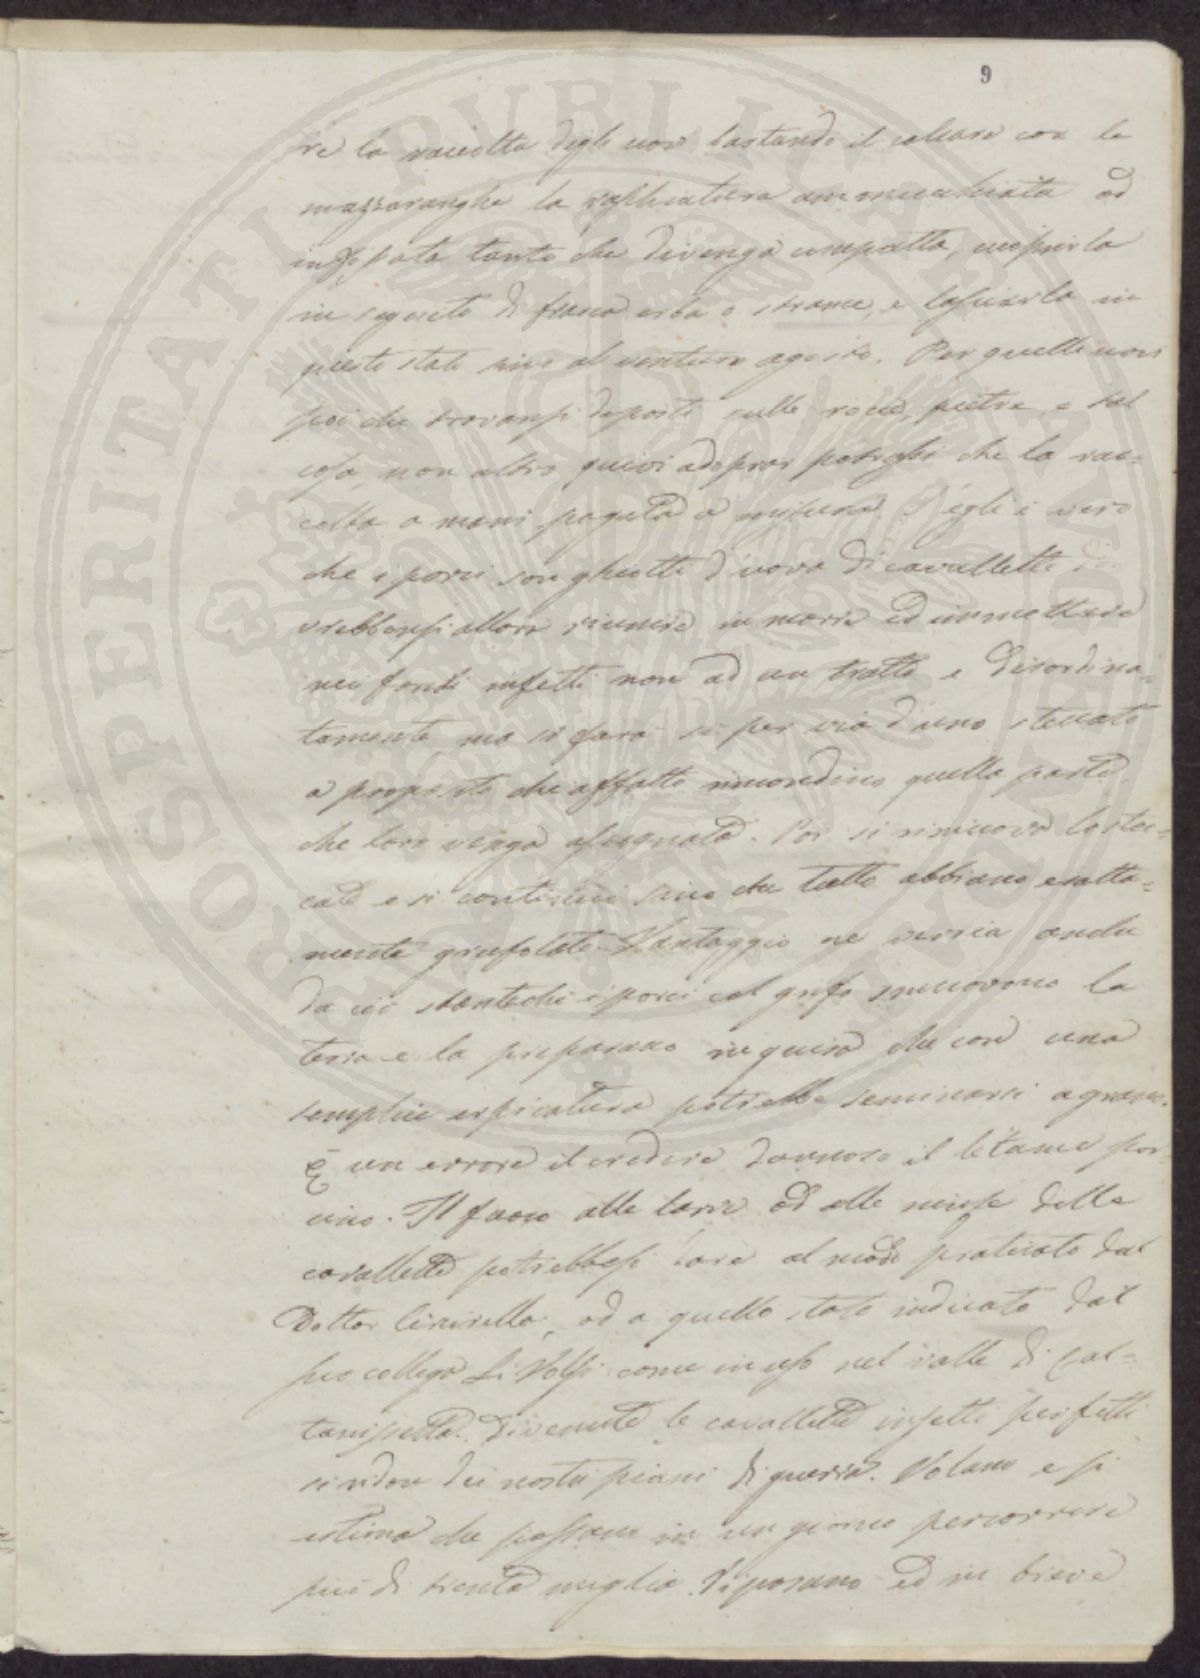 9
re la raccolta degli uovi bastando il calcare con le
mazzaranghe la raschiatura ammonticchiata ed
inzuppata tanto che divenga compatta, cuoprirla
in seguito di frasca erba o strame, e lasciarla in
questo stato sino al venturo agosto. Per quelle uovi
poi che trovansi deposti sulle roccie, pietre, e tal
cosa, non altro quivi adoprar potrassi che la rac-
colta a mani pagata a misura. S'egli è vero
che i porci son ghiotti d'uova di cavallette do-
vrebbonsi allora riunire in morre ed immettere
nei fondi infetti non ad un tratto e disordina-
tamente, ma si farà si per via d'uno steccato
a proposito che affatto rimondino quella parte
che loro venga assegnata. Poi si rimuova lo stec-
cato e si continui sino che tutto abbiano esatta-
mente grufolato. Vantaggio ne verria anche
da ciò stantechè i porci col grifo smuovono la
terra e la preparano in guisa che con una
semplice erpicatura potrebbe seminarsi a grano.
È un errore il credere dannoso il letame por-
cino. Il fuoco alle larve ed alle ninfe delle
cavallette potrebbesi dare al modo praticato dal
Dottor Cirivello, od a quello stato indicato dal
suo collega Li Volsi come in uso nel valle di Cal-
tanissetta. Divenute le cavallette insetti perfetti
si ridon dei nostri piani di guerra. Volano e si
estima che possano in un giorno percorrere
più di trenta miglia. Si posano ed in breve
PROSPERITATI PUBLICAE AUGENDAE